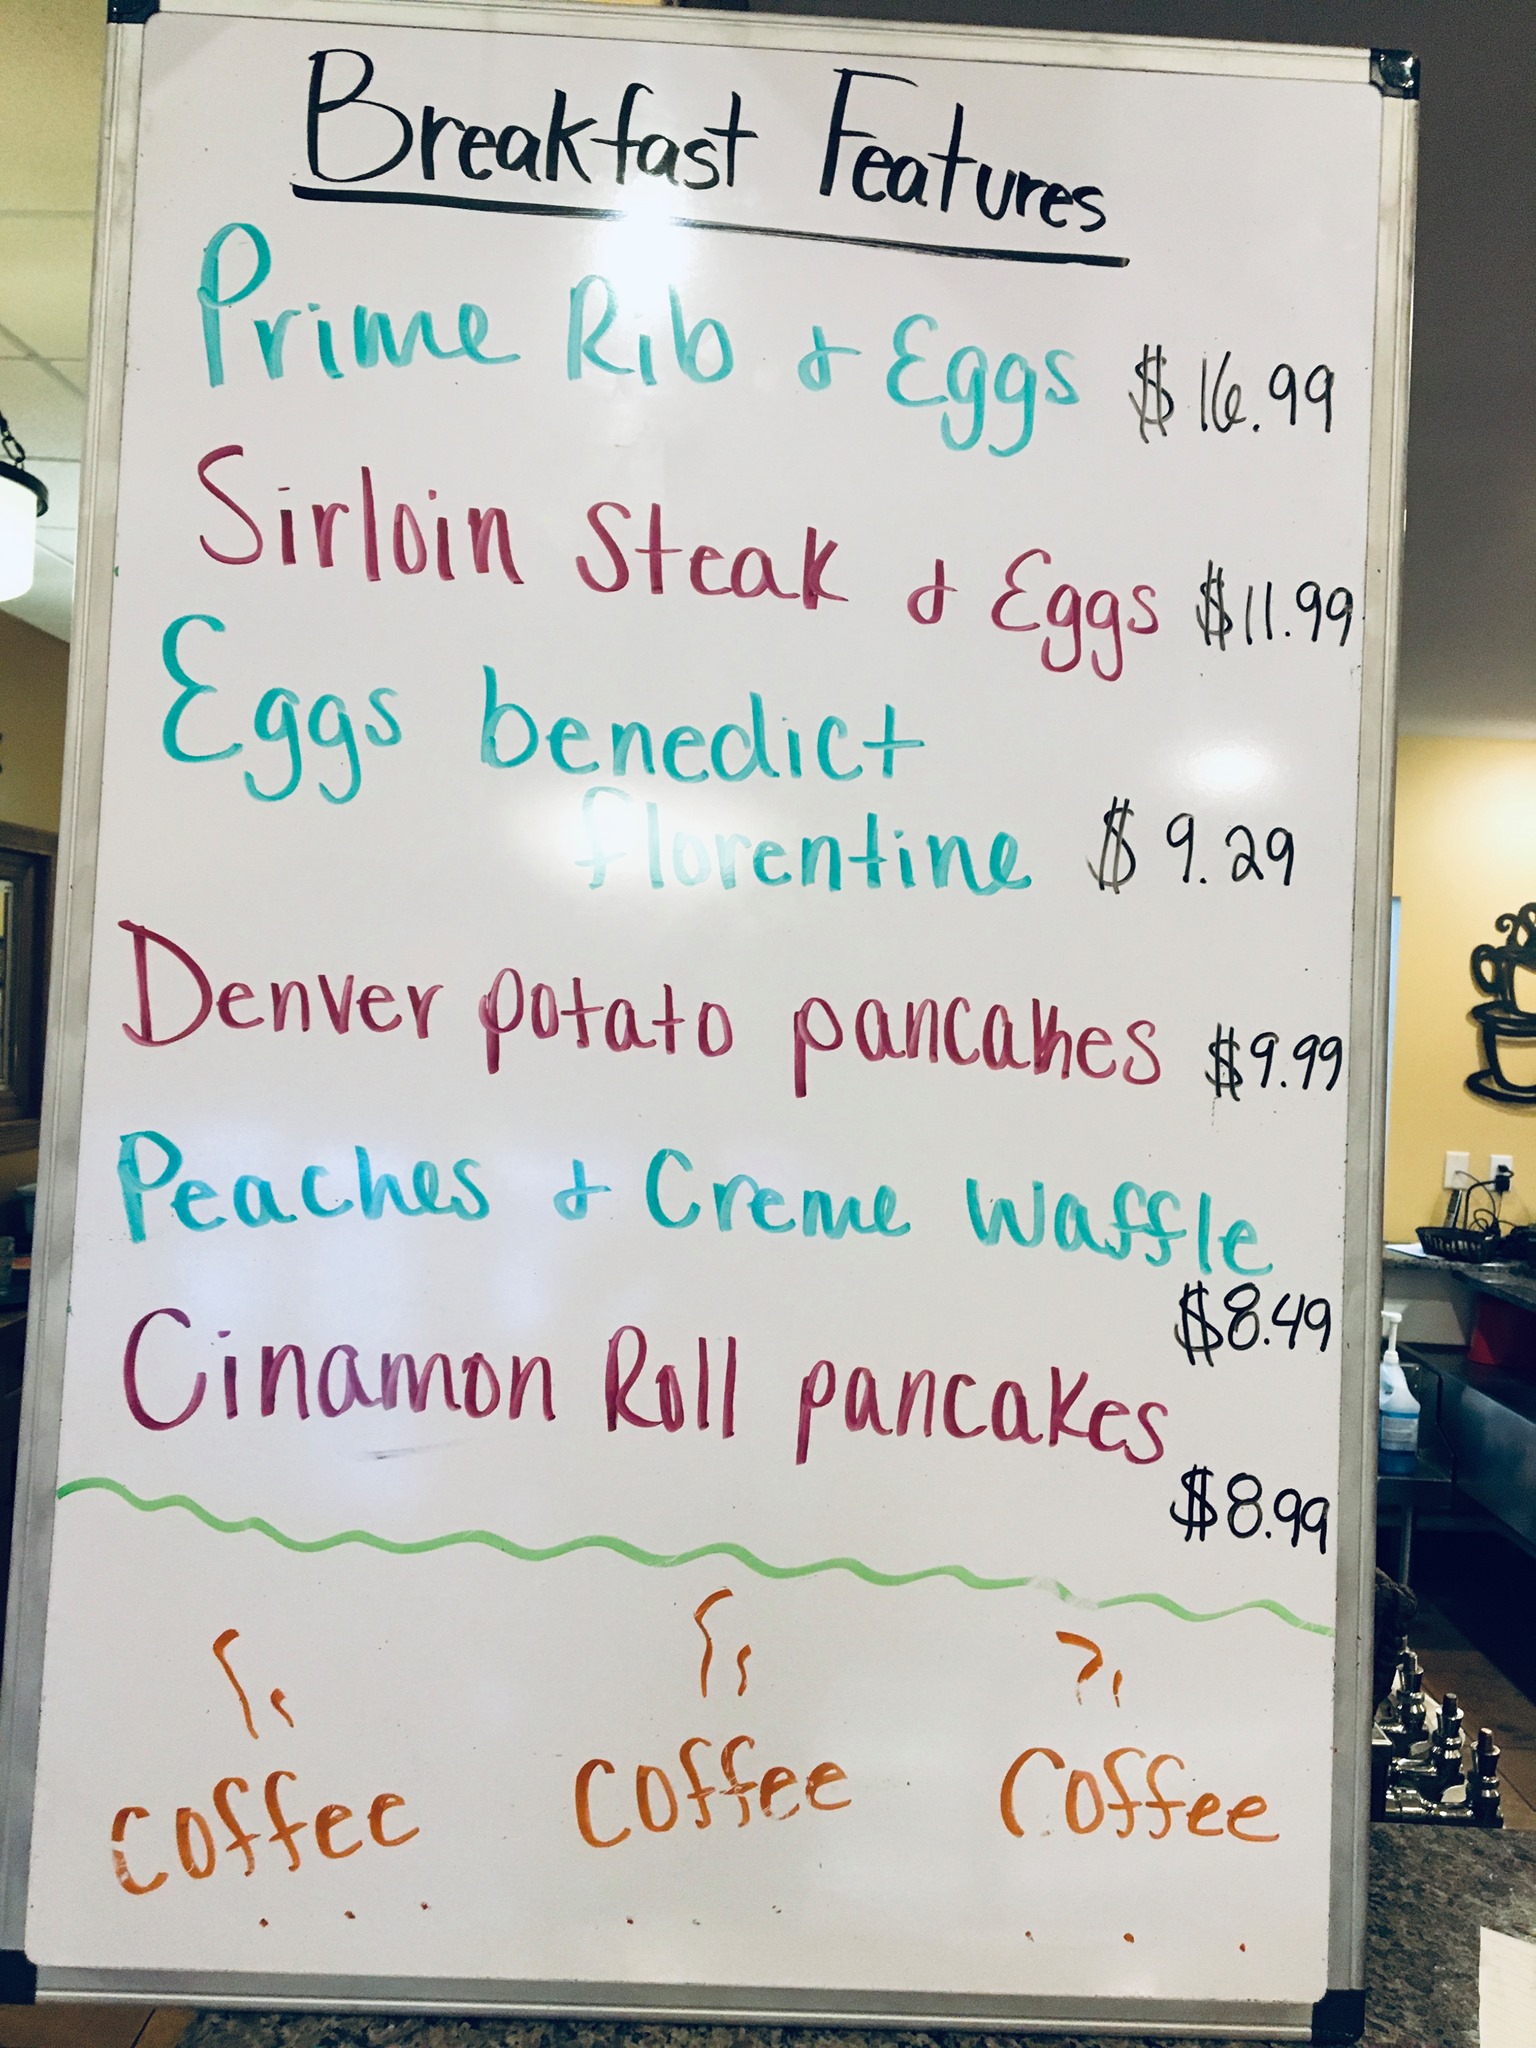 Breakfast Features
Prime Rib & Eggs $16.99
Sirloin Steak & Eggs $11.99
Eggs benedict
florentine $9.29
Denver potato pancakes $9.99
Peaches & Creme Waffle
$8.49
Cinamon Roll pancakes
$8.99
coffee coffee coffee